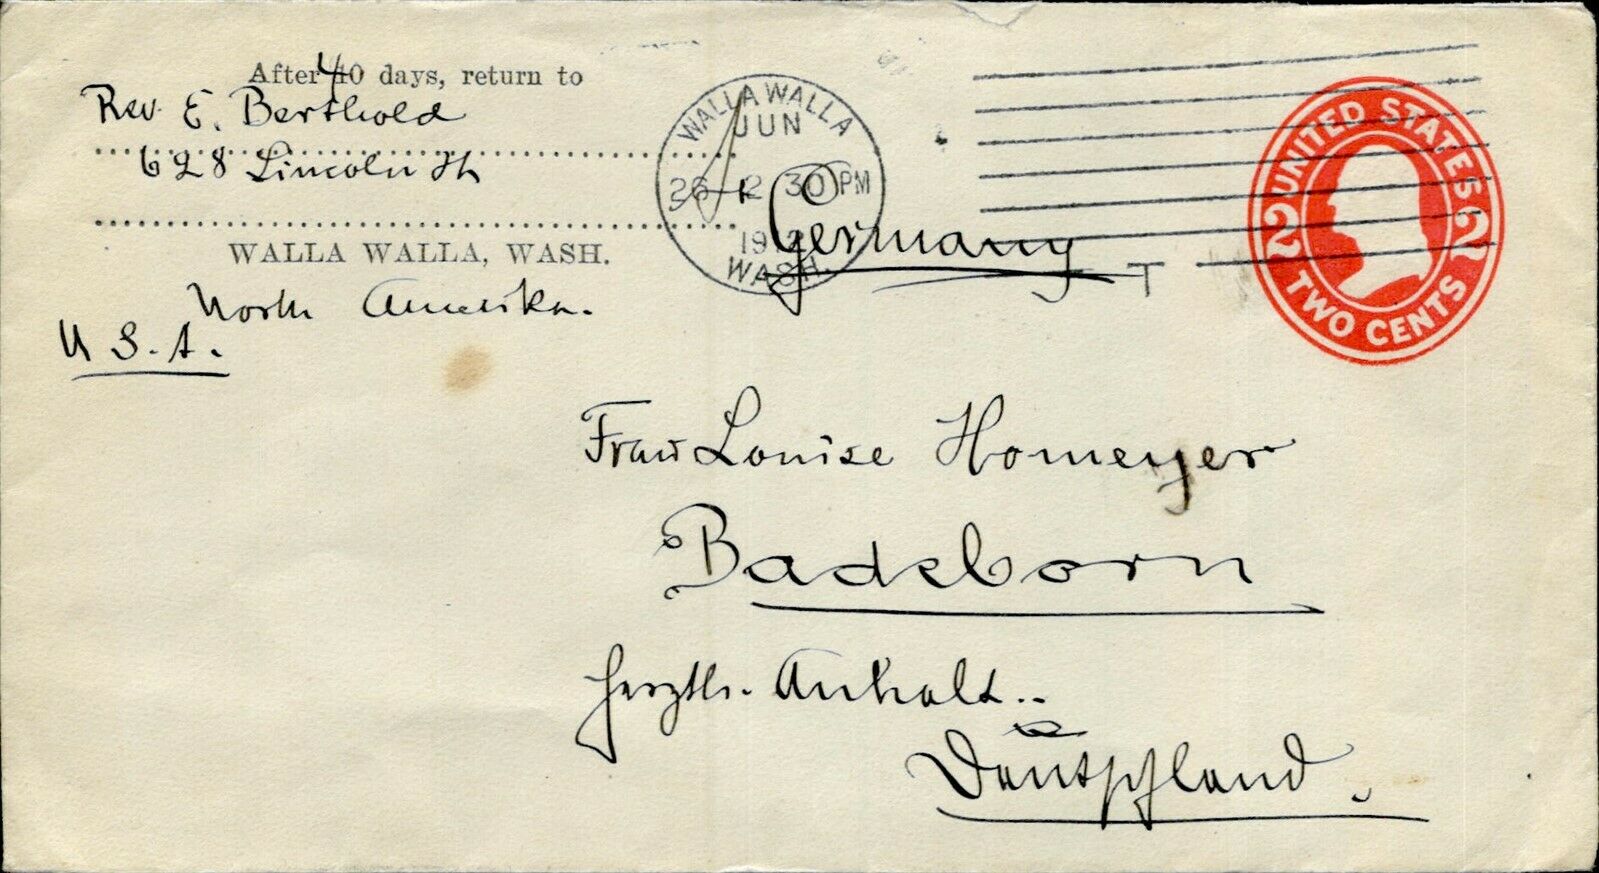 After 40 days, return to
Rev. E. Berthold
628 Lincoln St
WALLA WALLA, WASH.
North Amerika.
U S. A.
WALLA WALLA
JUN
26 - 2 30 PM
1912
WASH.
Germany
T
UNITED STATES
2 2
TWO CENTS
Frau Louise Homeyer
Badeborn
Herzth. Anhalt..
Deutschland.